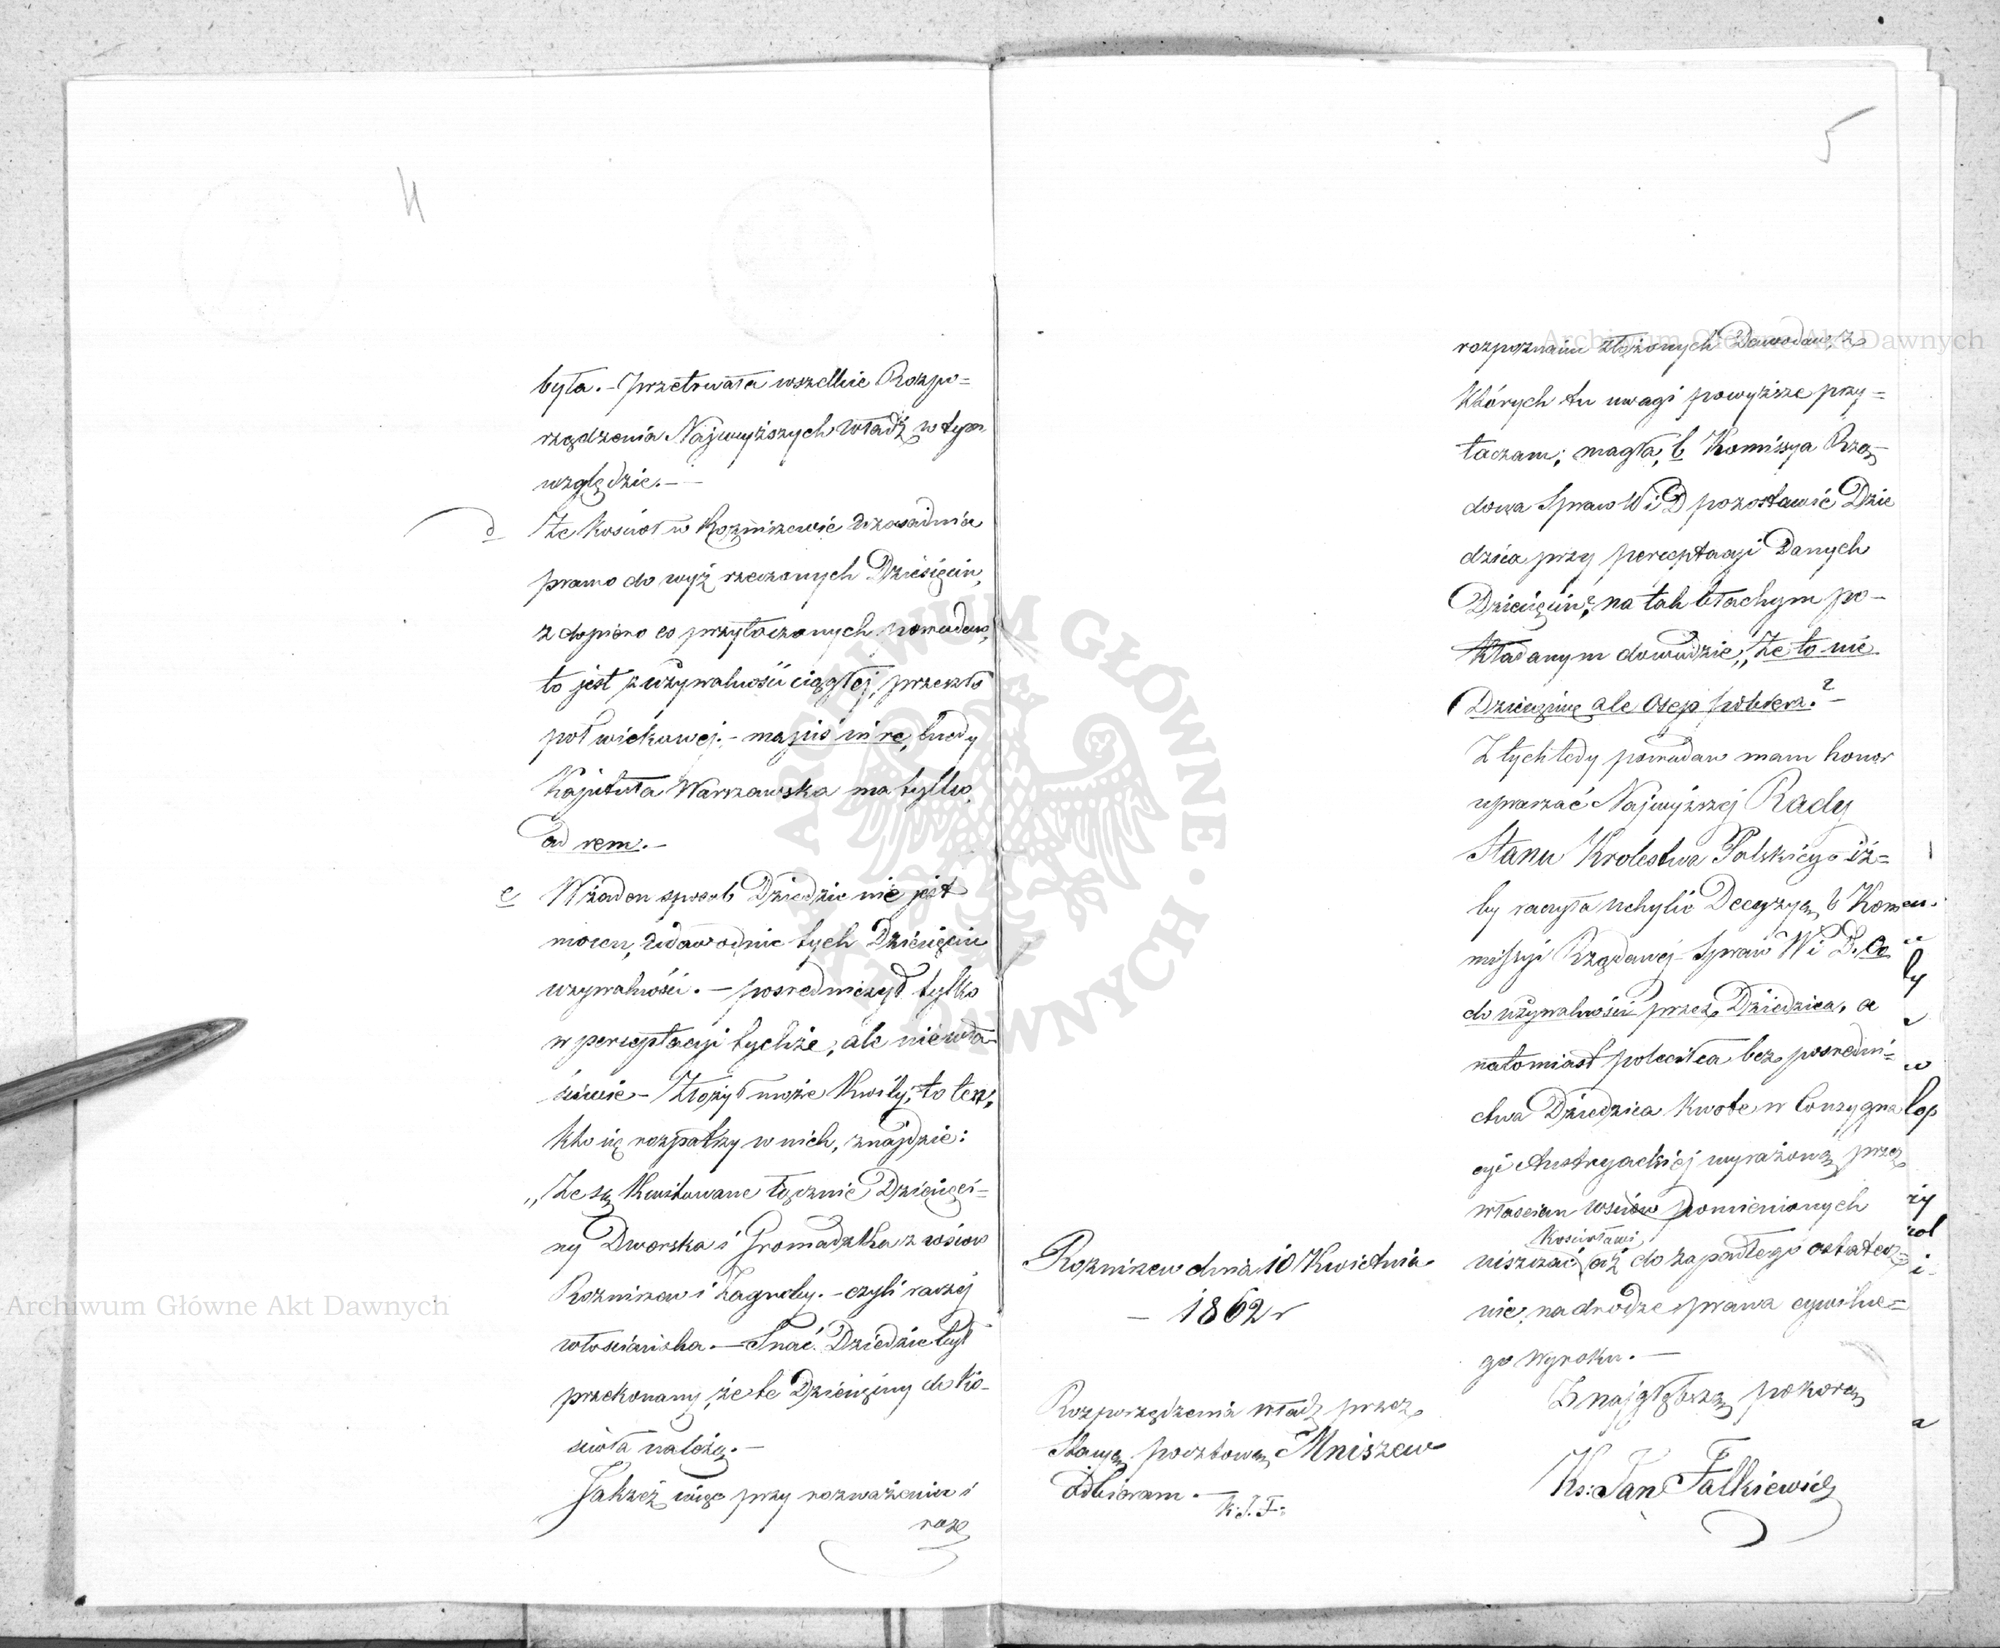 4
była. – Przetrwała wszelkie Rozpo=
rządzenia Najwyższych Władz w tym
względzie. –
d Że Kościoł w Rozniszewie uzasadnia
prawo do wyż rzeczonych Dziesięcin,
z dopiero co przytoczonych powodów,
to jest z używalności ciągłej, przeszło
pół wiekowej. – ma jus in re, kiedy
Kapituła Warszawska ma tylko,
ad rem. –
e W żaden sposób Dziedzic nie jest
mocen, udowodnić tych Dziesięcin
używalności. – pośredniczył tylko
w perceptacyi tychże, ale nie wła=
ściwie – Złożył może Kwity, to ten,
kto się rozpatrzy w nich, znajdzie:
„Że są Kwitowane łącznie Dziesięci=
ny Dworska i Gromadzka z wsiów
Rozniszew i Zagroby. – czyli raczej
włościańska. – Snać Dziedzic był
przekonany, że te Dziesięciny do Ko=
ścioła należą. –
Jakże więc przy rozważeniu i
roz
5
rozpoznaniu złożonych Dowodów, z
których tu uwagi powyższe przy=
taczam; mogła, b Komissya Rzą=
dowa Spraw W i D pozostawić Dzie
dzica przy perceptacyi Danych
Dziesięcin, na tak błachym po=
kładanym dowodzie; „Że to nie
Dziesięcinę ale Osep pobiera.? –
Z tych tedy powodów mam honor
upraszać Najwyższej Rady
Stanu Krolestwa Polskiego iż=
by raczyła uchylić Decyzyą b Kom
missyi Rządowej Spraw W i D. co
do używalności przez Dziedzica, a
natomiast poleciła bez pośredni=
ctwa Dziedzica Kwotę w Consygna
cyi Austryackiej wyrażoną przez
włościan wsiów pomienionych
Kościołowi,
uiszczać aż do zapadłego ostatecz=
nie, na drodze prawa cywilne=
go Wyroku. –
Z najgłębszą pokorą
Ks: Jan Falkiewicz
Rozniszew dnia 10 Kwietnia
– 1862 r
Rozporządzenia Władz przez
Stacyą pocztową Mniszew
Odbieram. –
K. J. F.
Archiwum Główne Akt Dawnych
Archiwum Główne Akt Dawnych
ARCHIWUM GŁÓWNE · AKT DAWNYCH ·